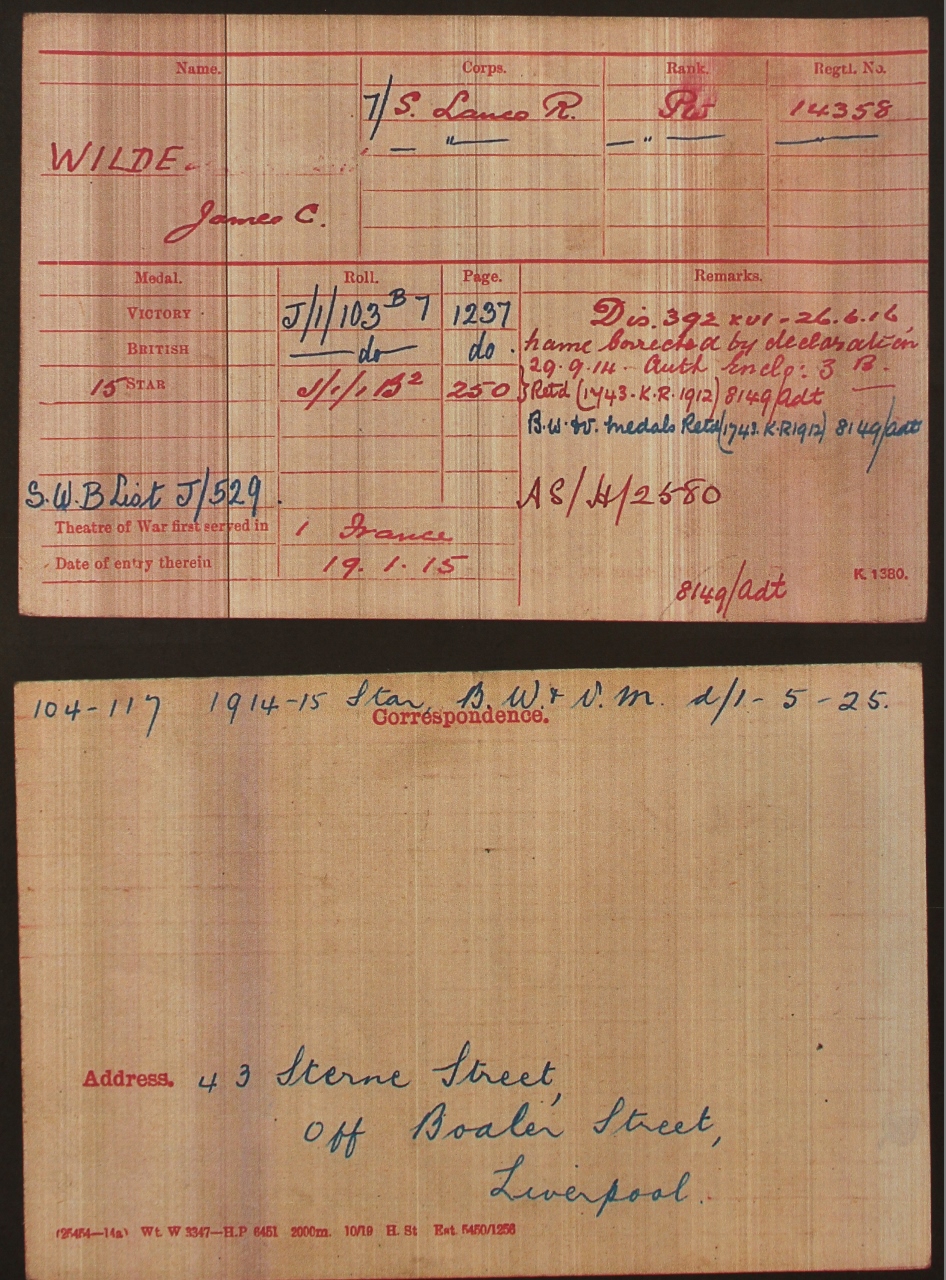 Name. Corps. Rank. Regtl. No.
7/S. Lanco R. Pte 14358
— " — — " — — " —
WILDE.
James C.
Medal. Roll. Page. Remarks.
VICTORY J/1/103 B 7 1237 Dis. 392 xvi - 26.6.16
BRITISH — do — do. name corrected by declaration
29.9.14 - Auth Enclo: 3 B.
15 STAR J/1/1 B2 250 Retd (1743. K.R. 1912) 8149/Adt
B.W. & V. medals Retd (1743. K.R 1912) 8149/adt
S.W.B List J/529. AS/H/2580
Theatre of War first served in 1 France
Date of entry therein 19.1.15 K. 1380.
8149/Adt
104-117 1914-15 Star, B.W. & V.M. d/1-5-25.
Correspondence.
Address. 43 Sterne Street,
off Boaler Street,
Liverpool.
(25454—14a) Wt. W 3347—H.P 6451 2000m. 10/19 H. St Est. 5450/1256